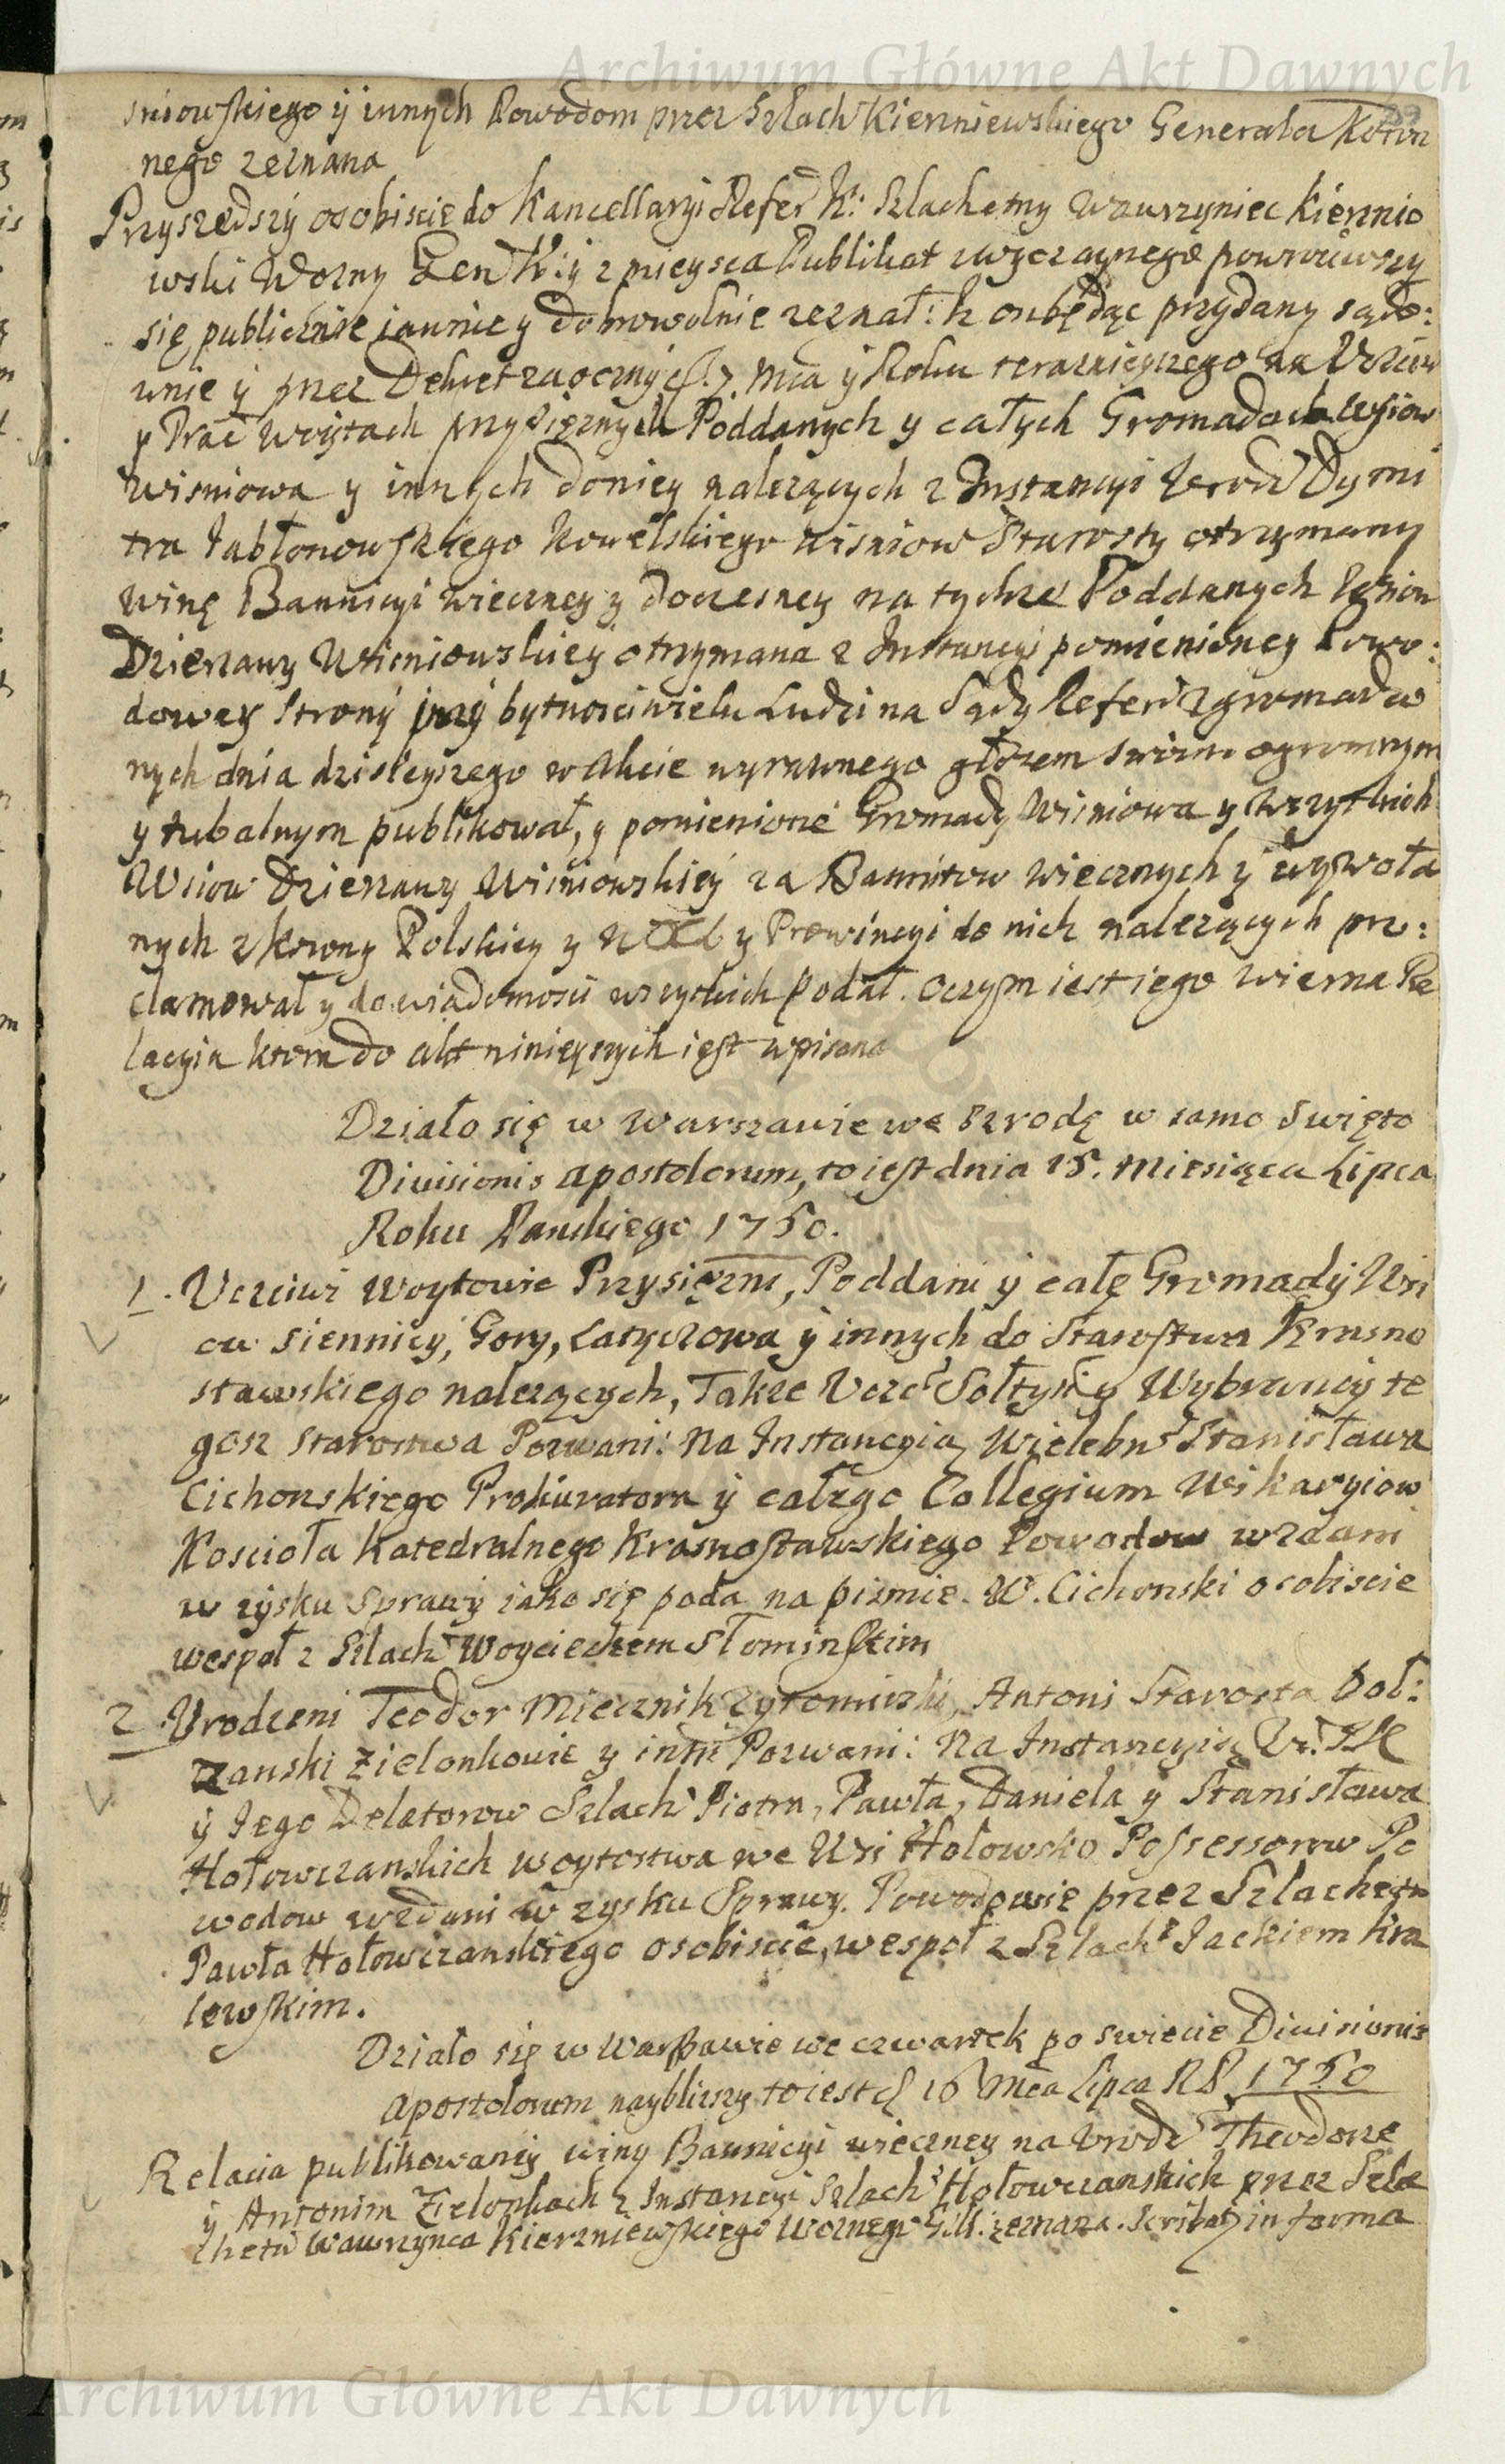 Archiwum Główne Akt Dawnych
sniowskiego ÿ innych Powodom przez Szlach Kierzniewskiego Generała Koron
nego zeznana
Przyszedszÿ osobiscie do Kancellaryi Refer K: Szlachetny Wawrzyniec Kierznie
wski Wozny Gen K: ÿ z mieysca Publikat zwyczaynego powrociwszy
się publicznie iawnie y dobrowolnie zeznał: iż on będąc przydany sądo:
wnie ÿ przez Dekret zaoczny d. 7 Mca ÿ Roku teraznieyszego na Uczciw
y Prac Woÿtach przysięznych Poddanych y całych Gromadach wsiow
Wisniowa y innych doniey nalezących z Instancyi Urodz Dymi
tra Jabłonowskiego Kowelskiego Wisniow Starosty otrzymany
Winę Bannicyi wieczney y doczesney na tychze Poddanych wsiow
Dzierzawy Wisniowskiey otrzymana z Instancyi pomienioney Powo:
dowey Strony przÿ bytnosci wielu Ludzi na Sądy Refer zgromadzo
nych dnia dzisieyszego w Akcie wyrazonego głosem swoim ogromnym
y tubalnym publikował, y pomienione Gromady Wisniowa y wszytkich
Wsiow Dzierzawy Wisniowskiey za Bannitow wiecznych ÿ wywoła
nych z Korony Polskiey y WXL y Prowincyi do nich nalezących pro:
clamował y do wiadomosci wszystkich podał. Oczym iest iego wierna Re
lacyia ktora do akt ninieyszych iest wpisana
Działo się w Warszawie we Szrodę w samo Swięto
Divisionis Apostolorum, to iest dnia 15. Miesiąca Lipca
Roku Panskiego 1750.
1. Uczciwi Woytowie Przysięzni, Poddani ÿ całę Gromadÿ Wsi
ow Siennicy, Gory, Latyczowa ÿ innych do Starostwa Krasno
stawskiego nalezących, Takze Uczc Sołtysi y Wybrańcÿ te
gosz Starostwa Pozwani: Na Instancyią Wielebn Stanisława
Cichonskiego Prokuratora ÿ całego Collegium Wikaryiow
Koscioła Katedralnego Krasnostawskiego Powodow wzdani
w zÿsku Sprawÿ iako się poda na pismie. W. Cichonski osobiscie
wespoł z Szlach Woyciechem Słominskim
2 Urodzeni Teodor Miecznik Zytomirski, Antoni Starosta Doł:
zanski Zielonkowie y inni Pozwani: Na Instancyią Ur.
ÿ Jego Delatorow Szlach Piotra, Pawła, Daniela y Stanisława
Hołowczanskich Woytostwa we Wsi Hołowsko Possessorow Po
wodow wzdani w zysku Sprawy. Powodowie przez Szlachetn
Pawła Hołowczanskiego osobiscie, wespoł z Szlach Jackiem Kra
iewskim.
Działo się w Warszawie we czwartek po swiecie Divisionis
Apostolorum naybliższy to iest d 16 Mca Lipca RP 1750
Relacia publikowanÿ winy Bannicyi wieczney na Urodz Theodorze
ÿ Antonim Zielonkach z Instancyi Szlach Hołowczanskich przez Szla
chetn Wawrzynca Kierzniewskiego Woznego G:K. zeznana. in forma
Archiwum Główne Akt Dawnych